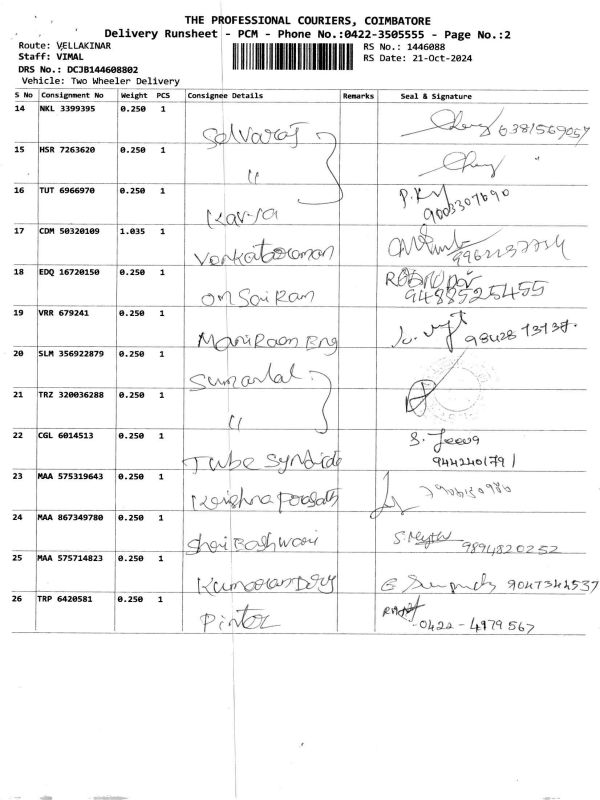 THE PROFESSIONAL COURIERS, COIMBATORE
Delivery Runsheet - PCM - Phone No.:0422-3505555 - Page No.:2
Route: VELLAKINAR
RS No.: 1446088
Staff: VIMAL
RS Date: 21-Oct-2024
DRS No.: DCJB144608802
Vehicle: Two Wheeler Delivery
S No Consignment No Weight PCS Consignee Details Remarks Seal & Signature
14 NKL 3399395 0.250 1
Selvaraj 6381569057
15 HSR 7263620 0.250 1
"
16 TUT 6966970 0.250 1
9003307690
17 CDM 50320109 1.035 1
Venkataraman
18 EDQ 16720150 0.250 1
Om Sai Ram 9488525455
19 VRR 679241 0.250 1
Mani Raam Eng
20 SLM 356922879 0.250 1
21 TRZ 320036288 0.250 1
"
22 CGL 6014513 0.250 1
S. Jeeva
Tube Syndicate 9442401791
23 MAA 575319643 0.250 1
Krishna Prasath
24 MAA 867349780 0.250 1
9894820252
25 MAA 575714823 0.250 1
9047344537
26 TRP 6420581 0.250 1
Pinter 0422-4979567